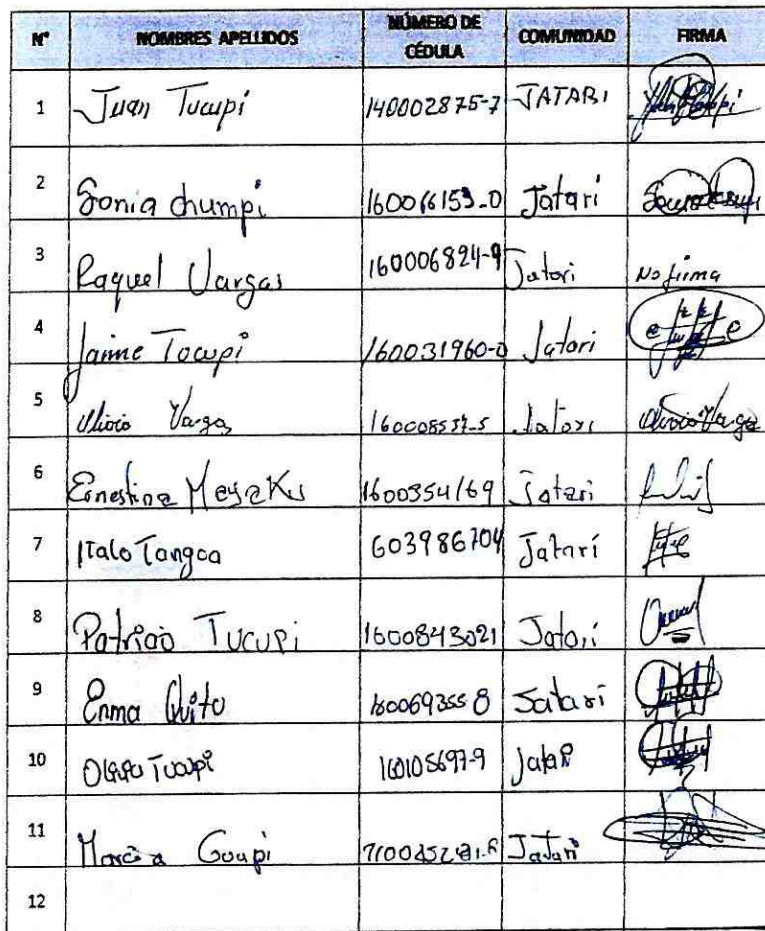 N° NOMBRES APELLIDOS NÚMERO DE CÉDULA COMUNIDAD FIRMA
1 Juan Tucupi 140002875-7 JATARI
2 Sonia chumpi 160016153-0 Jatari
3 Raquel Vargas 160006824-9 Jatari No firma
4 Jaime Tocupi 160031960-0 Jatori
5 Olivio Vargas Jatori Olivio Varga
6 Ernestina Mayaku 1600354169 Jatari
7 Italo Tangoa 603986704 Jatari
8 Patricio Tucupi 1600843021 Jatari
9 Enma Quito 160069355 8 Jatari
10 Tucupi 160105697-9 Jatari
11 Jatari
12